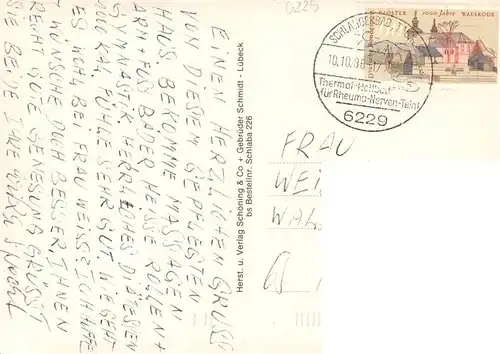 6225
EINEN HERZLICHEN GRUSS
VON DIESEM GEPFLEGTEN
HAUS. BEKOMME MASSAGEN
ARM + FUSS BÄDER HEISSE ROLLEN +
GYMNASTIK. HERRLICHES DIÄTESSEN
1000 KAL. FÜHLE SEHR GUT. WIE GEHT
ES IHNEN, FRAU WEISS? ICH HOFFE
+ WÜNSCHE DOCH BESSER. IHNEN
RECHT GUTE GENESUNG GRÜSST
SIE BEIDE IHRE
Herst. u. Verlag Schöning & Co + Gebrüder Schmidt - Lübeck
bs Bestellnr. Schlaba 226
KLOSTER 1000 Jahre WALSRODE
SCHLANGENBAD
10.10.86
Thermal-Heilbad
für Rheuma-Nerven-Teint
6229
FRAU
WEI
WAL